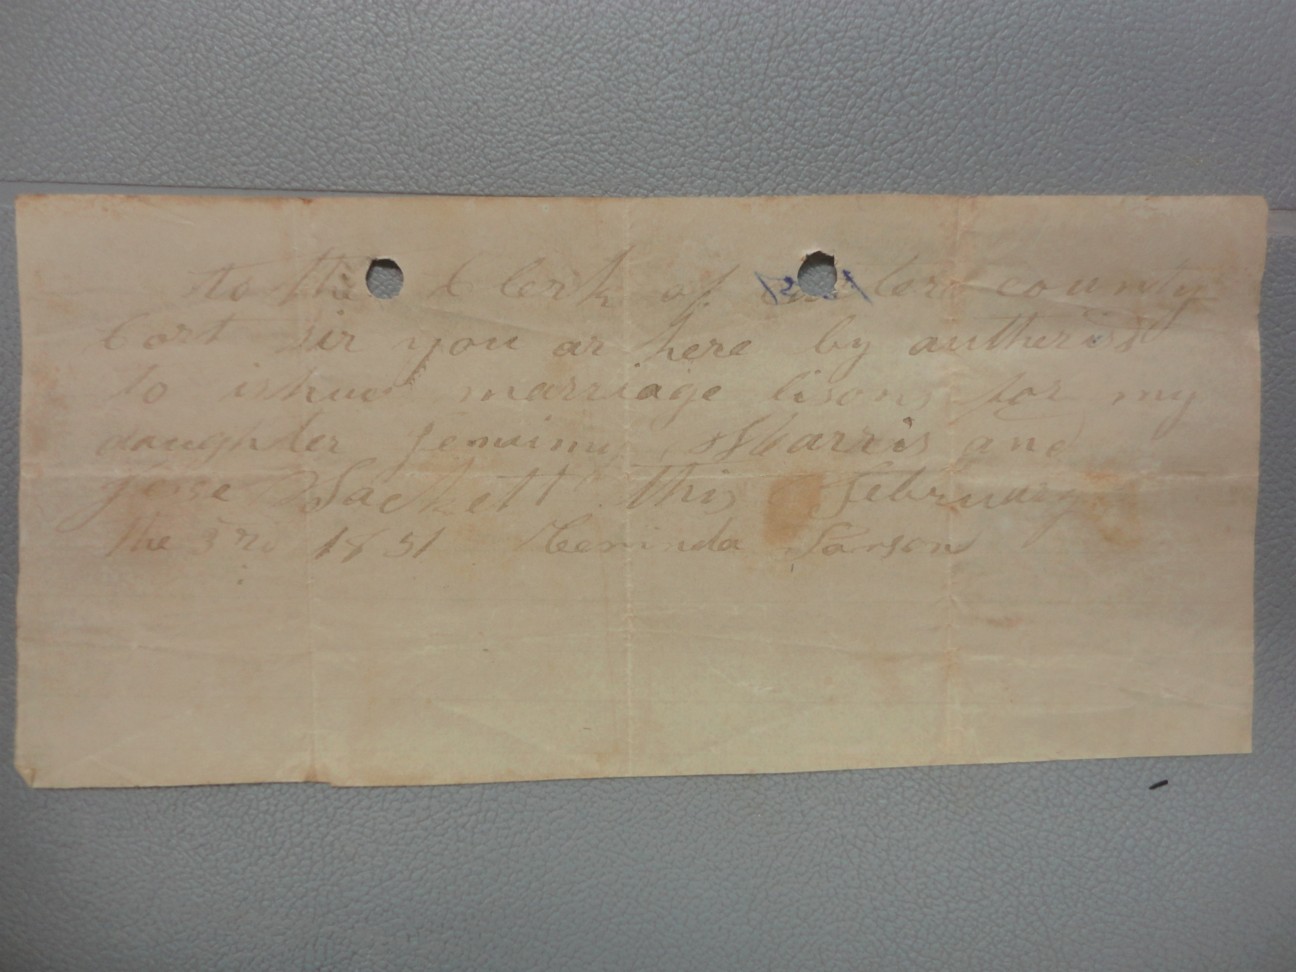 to the Clerk of county
Cort sir you ar here by autherisd
to ishue marriage lisons for my
daughter Jemima Sharris and
jesse Sackett this february
the 3rd 1851 Larson